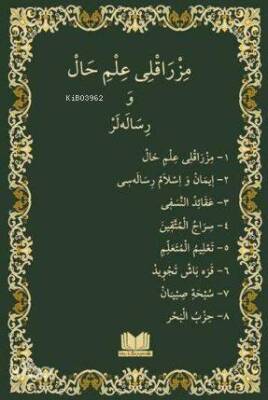 مِزْرَاقْلِى عِلْمِ حَالْ
KiB03962
وَ
رِسَالَه‌لَرْ
١- مِزْرَاقْلِى عِلْمِ حَالْ
٢- اِيمَانْ وَ اِسْلَامْ رِسَالَه‌سِى
٣- عَقَائِدُ النَّسَفِى
٤- سِرَاجُ الْمُتَّقِينَ
٥- تَعْلِيمُ الْمُتَعَلِّمِ
٦- قَرَه بَاشْ تَجْوِيدْ
٧- سُبْحَةِ صِبْيَانْ
٨- حِزْبُ الْبَحْر